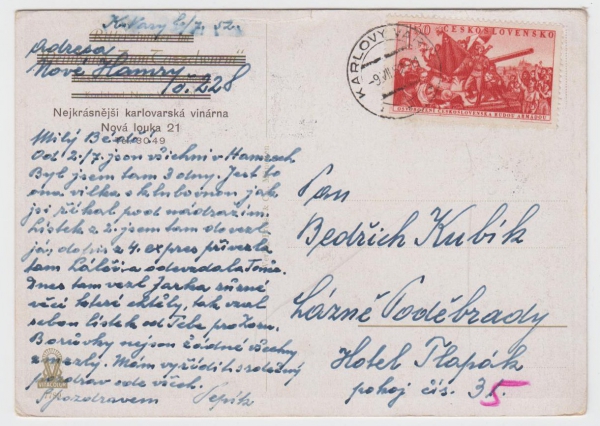 K. Vary 6./7. 52.
Adresa
Nové Hamry č. 228
Nejkrásnější karlovarská vinárna
Nová louka 21
3049
Milý Bédo!
Od 2./7. jsou všichni v Hamrech
Byl jsem tam 3 dny. Jest to
ona vilka s klubovnou jak
jsi říkal pod nádražím.
Lístek z 2. jsem tam dovezl
já, dopis z 4. expres přivezla
tam a odevzdala
Dnes tam vezl Jarka různé
věci které chtěly, tak vzal
sebou lístek od Tebe pro
Borůvky nejsou žádné všechny
zmrzly. Mám vyřídit srdečný
pozdrav ode všech.
S pozdravem Pepík
KARLOVY VARY
-9.VII
ČESKOSLOVENSKO
OSVOBOZENÍ ČESKOSLOVENSKA RUDOU ARMÁDOU
Pan
Bedřich Kubík
Lázně Poděbrady
Hotel Tlapák
pokoj čís. 35.